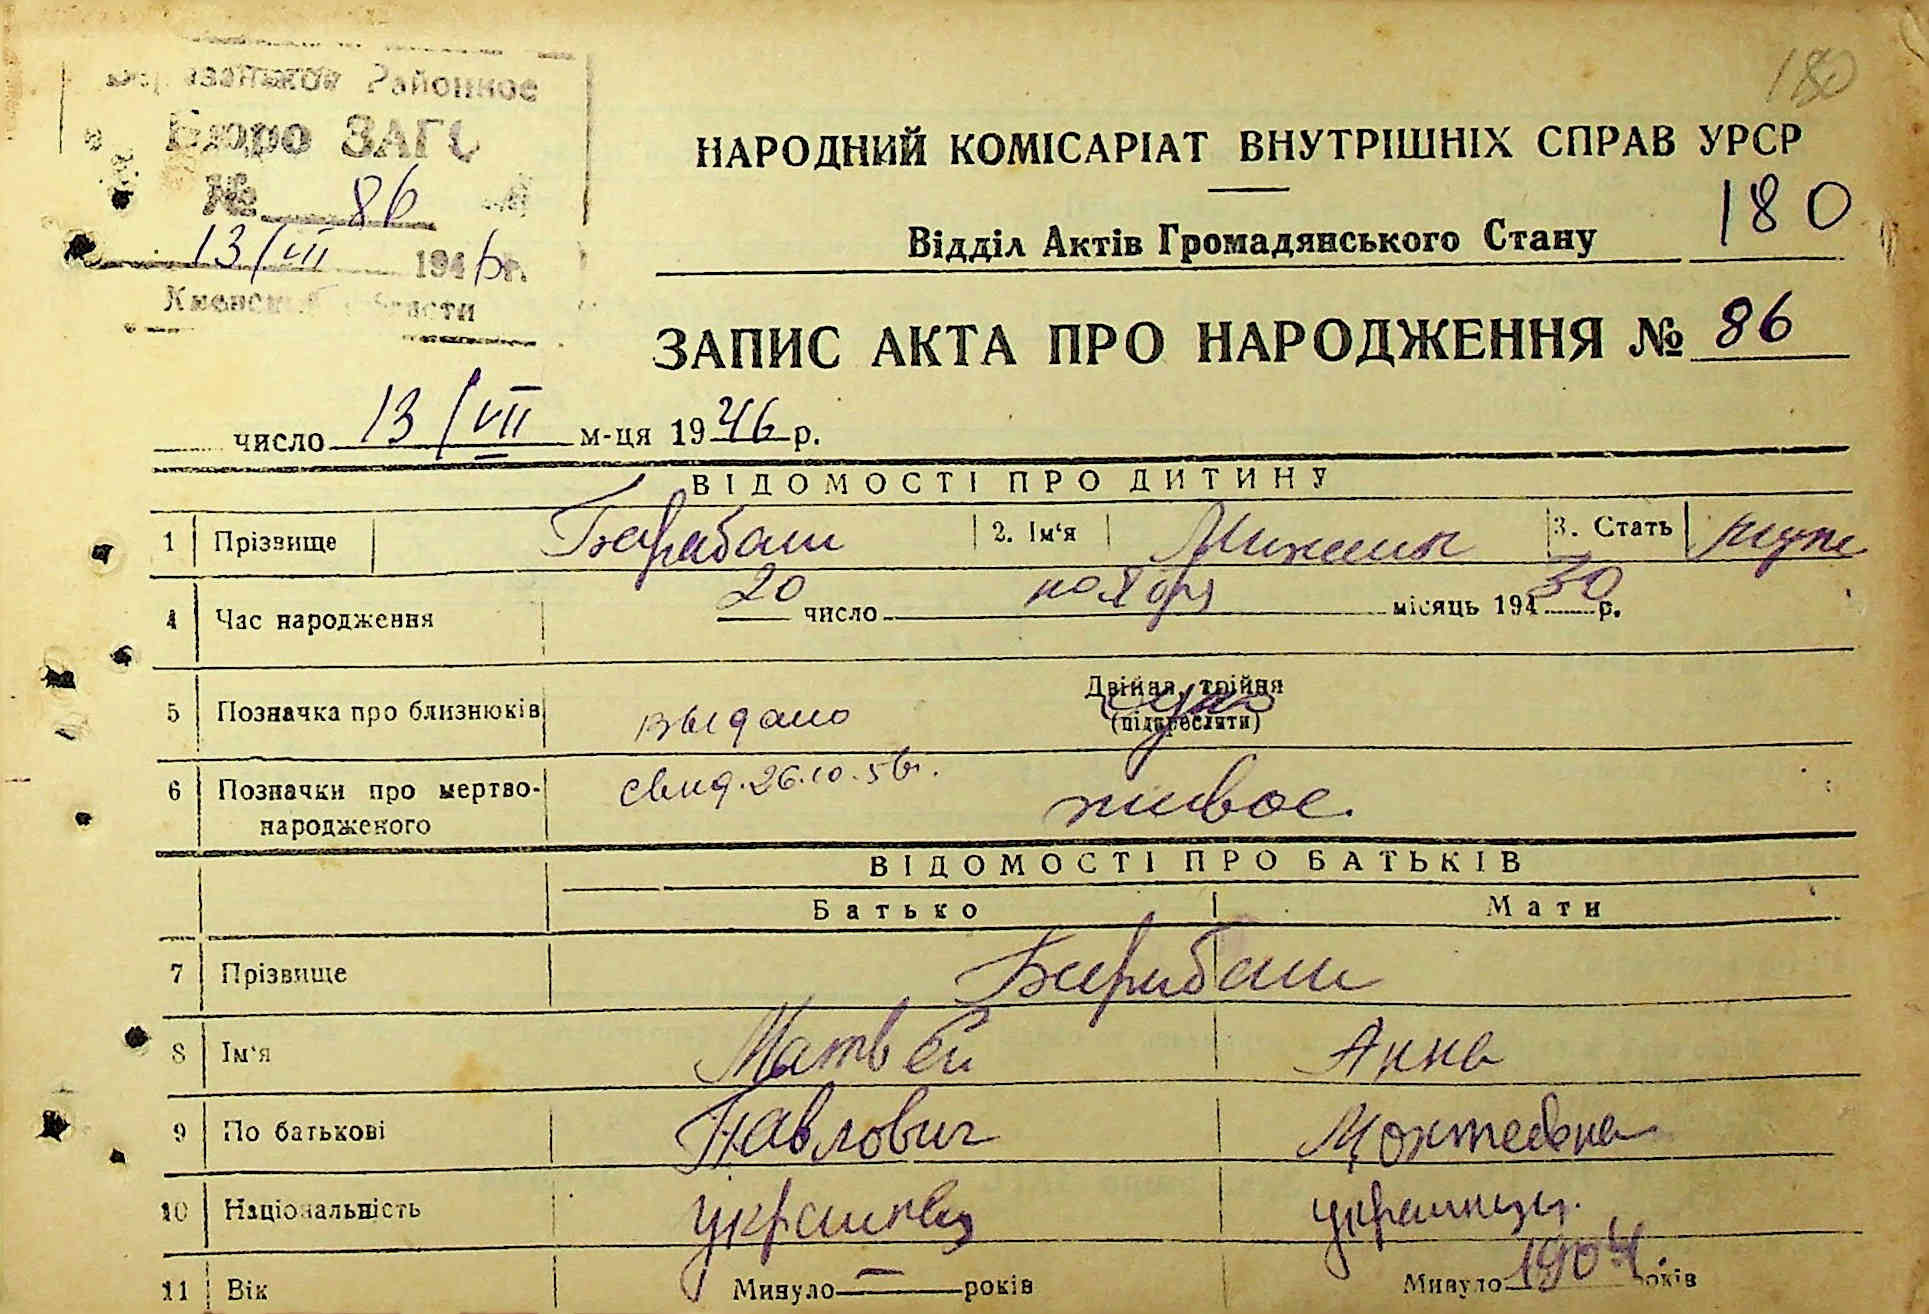 180
Районное
Бюро ЗАГС
№ 86
13/VII 1946 г.
Киевской области
НАРОДНИЙ КОМІСАРІАТ ВНУТРІШНІХ СПРАВ УРСР
Відділ Актів Громадянського Стану 180
ЗАПИС АКТА ПРО НАРОДЖЕННЯ № 86
число 13/VII м-ця 1946 р.
ВІДОМОСТІ ПРО ДИТИНУ
1 Прізвище Барабаш 2. Ім'я 3. Стать муж
4 Час народження 20 число ноября місяць 194 30 р.
5 Позначка про близнюків выдано Двійня, трійня
(підкреслити)
6 Позначки про мертво- свид. 26.10.56г. живое.
народженого
ВІДОМОСТІ ПРО БАТЬКІВ
Батько Мати
7 Прізвище Барабаш
8 Ім'я Матвей Анна
9 По батькові Павлович
10 Національність украинец украинцы.
11 Вік Минуло — років Минуло 1904. років